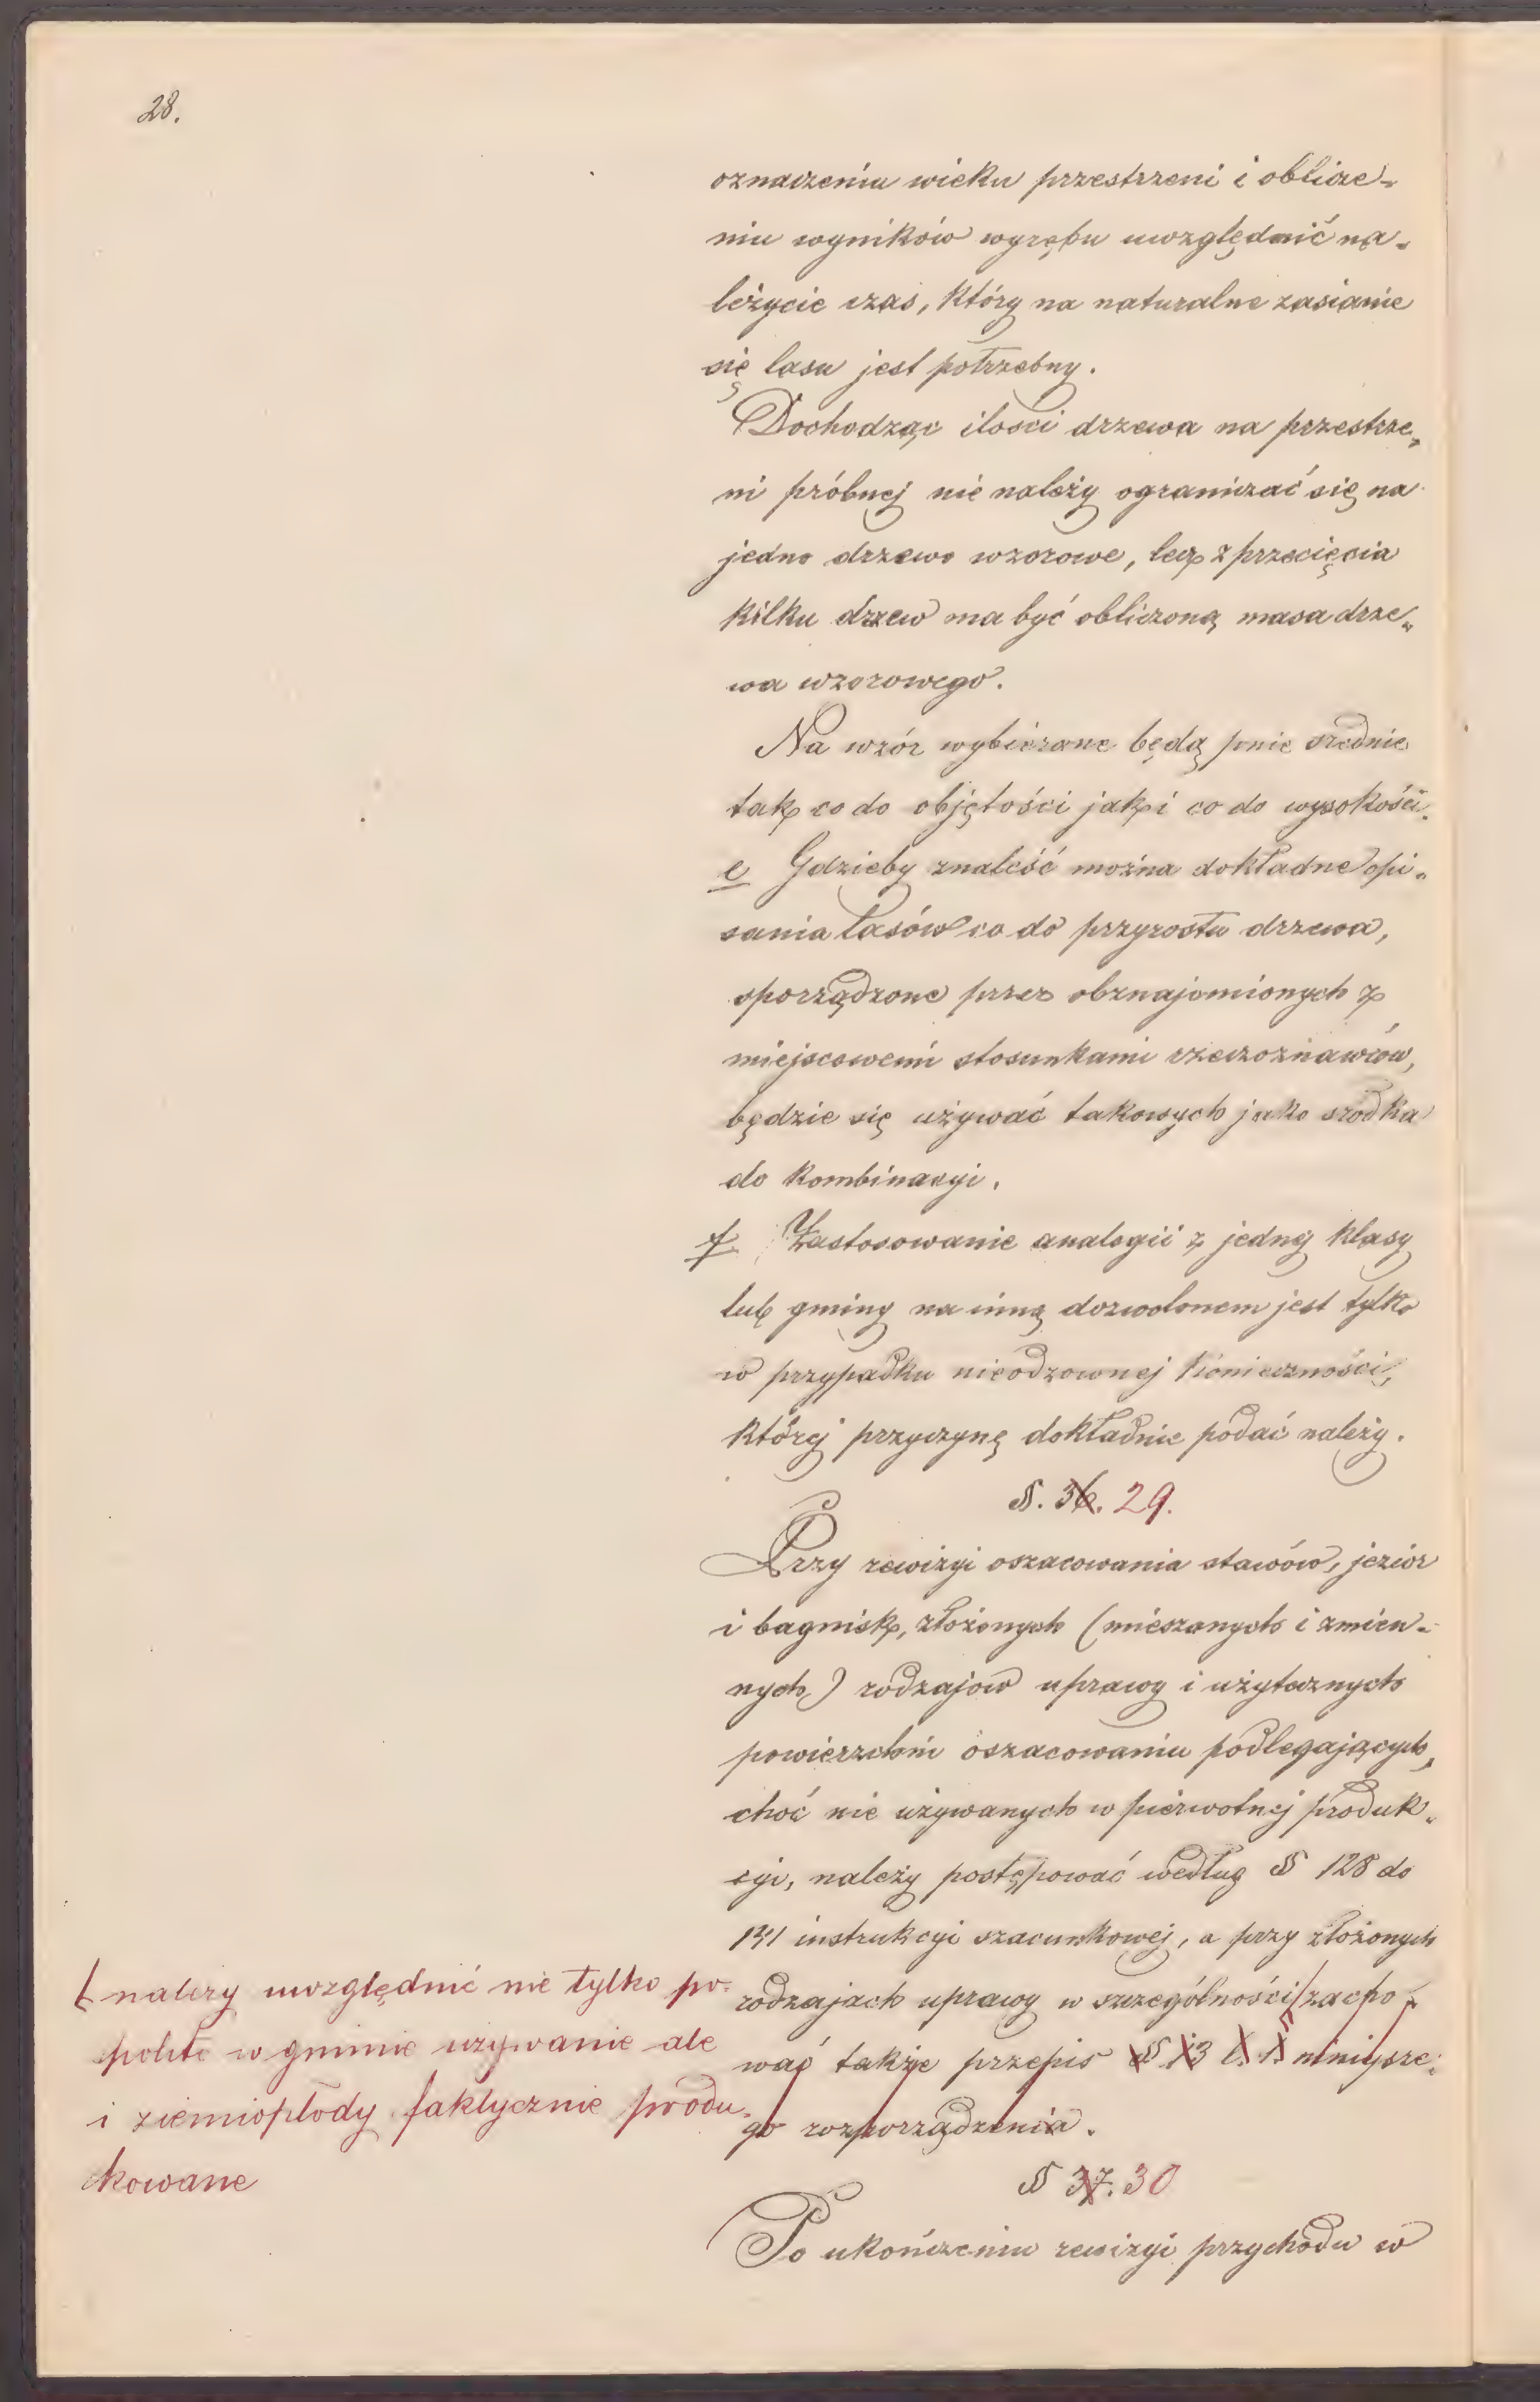 28.
oznaczeniu wieku przestrzeni i oblicze-
niu wyników wyrębu uwzględnić na-
leżycie czas, który na naturalne zasianie
się lasu jest potrzebny.
Dochodząc ilości drzewa na przestrze-
ni próbnej nie należy ograniczać się na
jedno drzewo wzorowe, lecz z przecięcia
kilku drzew ma być obliczoną masa drze-
wa wzorowego.
Na wzór wybierane będą pnie srednie
tak co do objętości jak i co do wysokości.
e Gdzieby znaleść można dokładne opi-
sania lasów co do przyrostu drzewa,
sporządzone przez obznajomionych z
miejscowemi stosunkami rzeczoznawców,
będzie się używać takowych jako srodka
do kombinacyi.
f Zastosowanie analogii z jednej klasy
lub gminy na inną dozwolonem jest tylko
w przypadku nieodzownej konieczności,
której przyczynę dokładnie podać należy.
§. 36. 29.
Przy rewizyi oszacowania stawów, jezior
i bagnisk, złożonych (mieszanych i zmien-
nych) rodzajów uprawy i użytecznych
powierzchni oszacowaniu podlegających,
choć nie używanych w pierwotnej produk-
cyi, należy postępować według § 128 do
131 instrukcyi szacunkowej, a przy złożonych
rodzajach uprawy w szczególności zacho-
wać także przepis § 13 l. 1. niniejsze-
go rozporządzenia.
należy uwzględnić nie tylko po-
spolite w gminie używanie ale
i ziemiopłody faktycznie produ-
kowane
§ 37. 30
Po ukończeniu rewizyi przychodu w